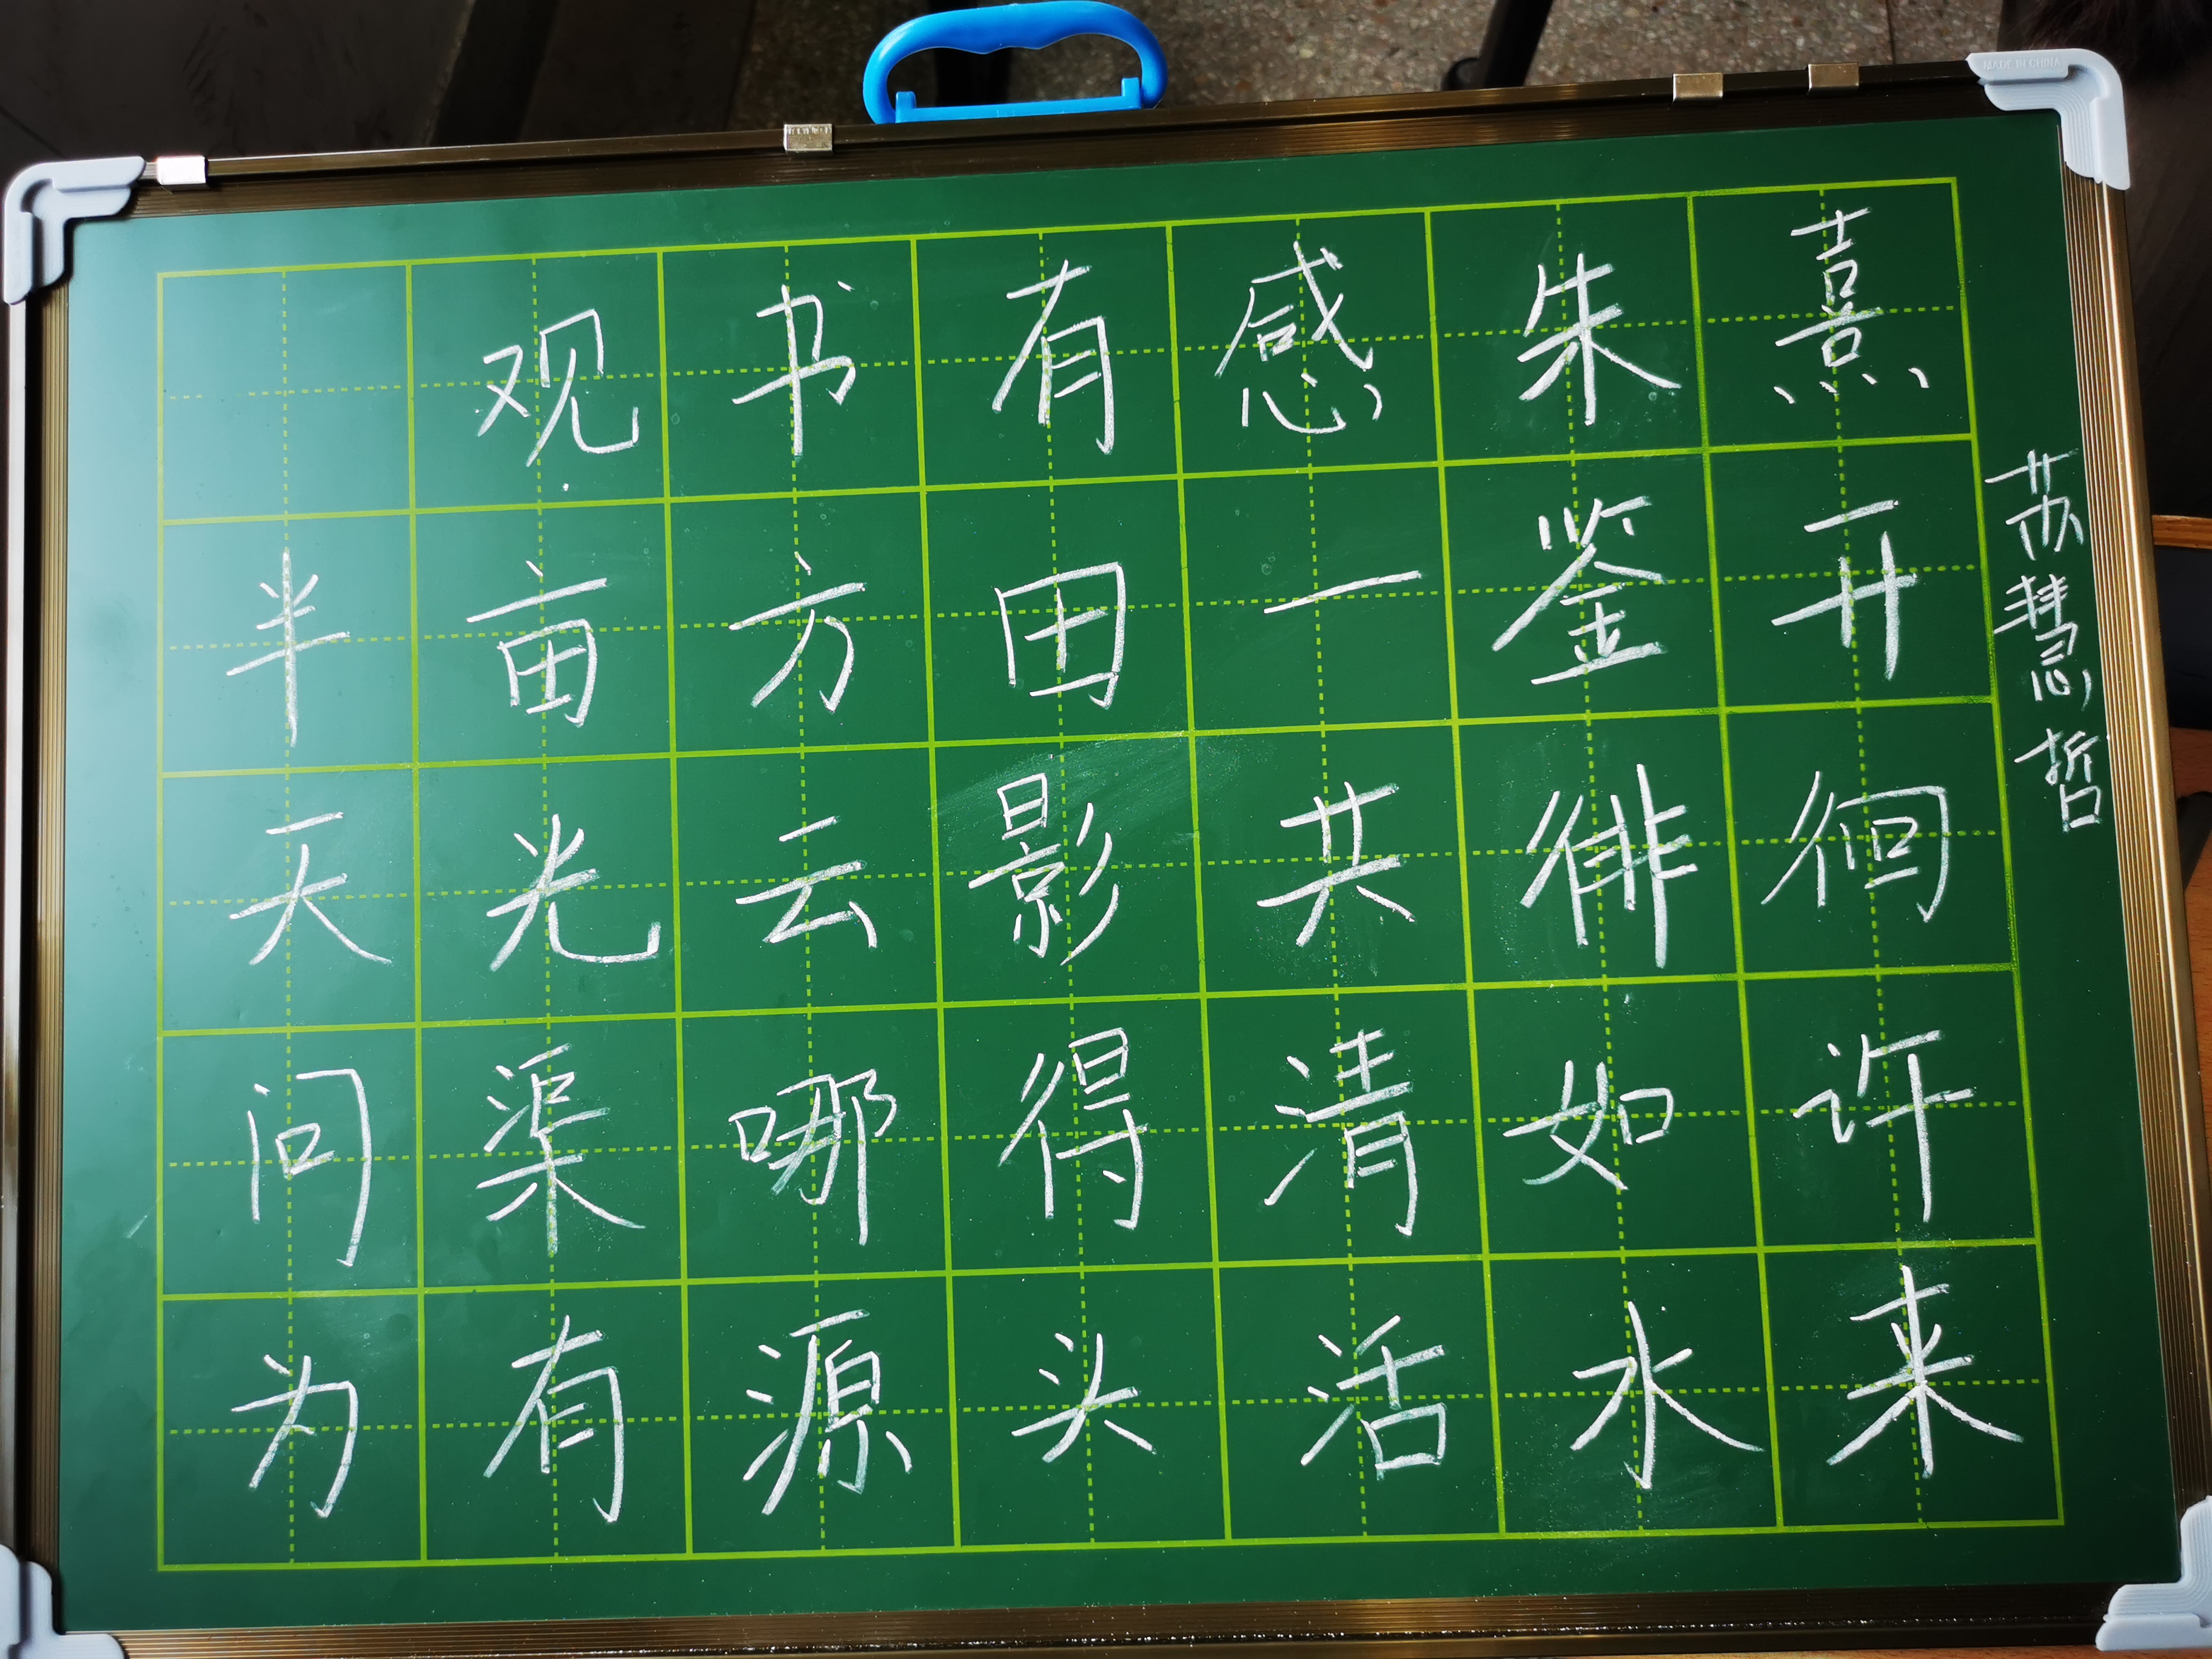 观书有感朱熹
半亩方田一鉴开
天光云影共徘徊
问渠哪得清如许
为有源头活水来
苏慧哲
MADE IN CHINA